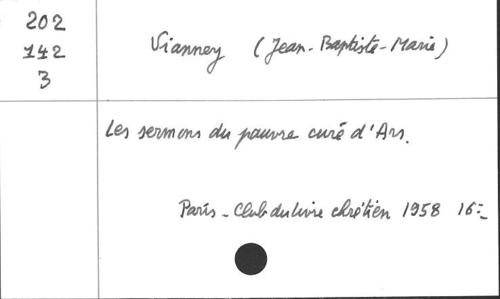 202
142
3
Vianney (Jean-Baptiste-Marie)
Les sermons du pauvre curé d'Ars.
Paris - Club du livre chrétien 1958 16:-